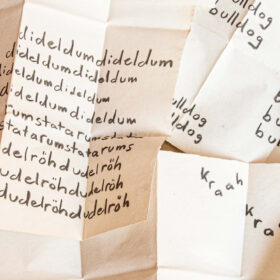 dideldumdideldum
dideldumdideldum
dideldumdideldum
dideldumdideldum
rumstatarumstata
statarums
delröhdudelröh
dudelröhdudelröh
dudelröhdudelröh
bulldog
bulldog
bulldog
bulldog
kraah